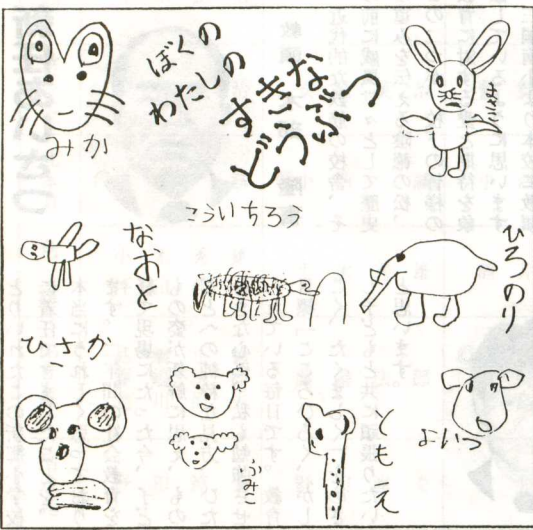 ぼくの
わたしの
すきな
どうぶつ
みか
こういちろう
なおと
ひろのり
ひさか
ふみこ
ともえ